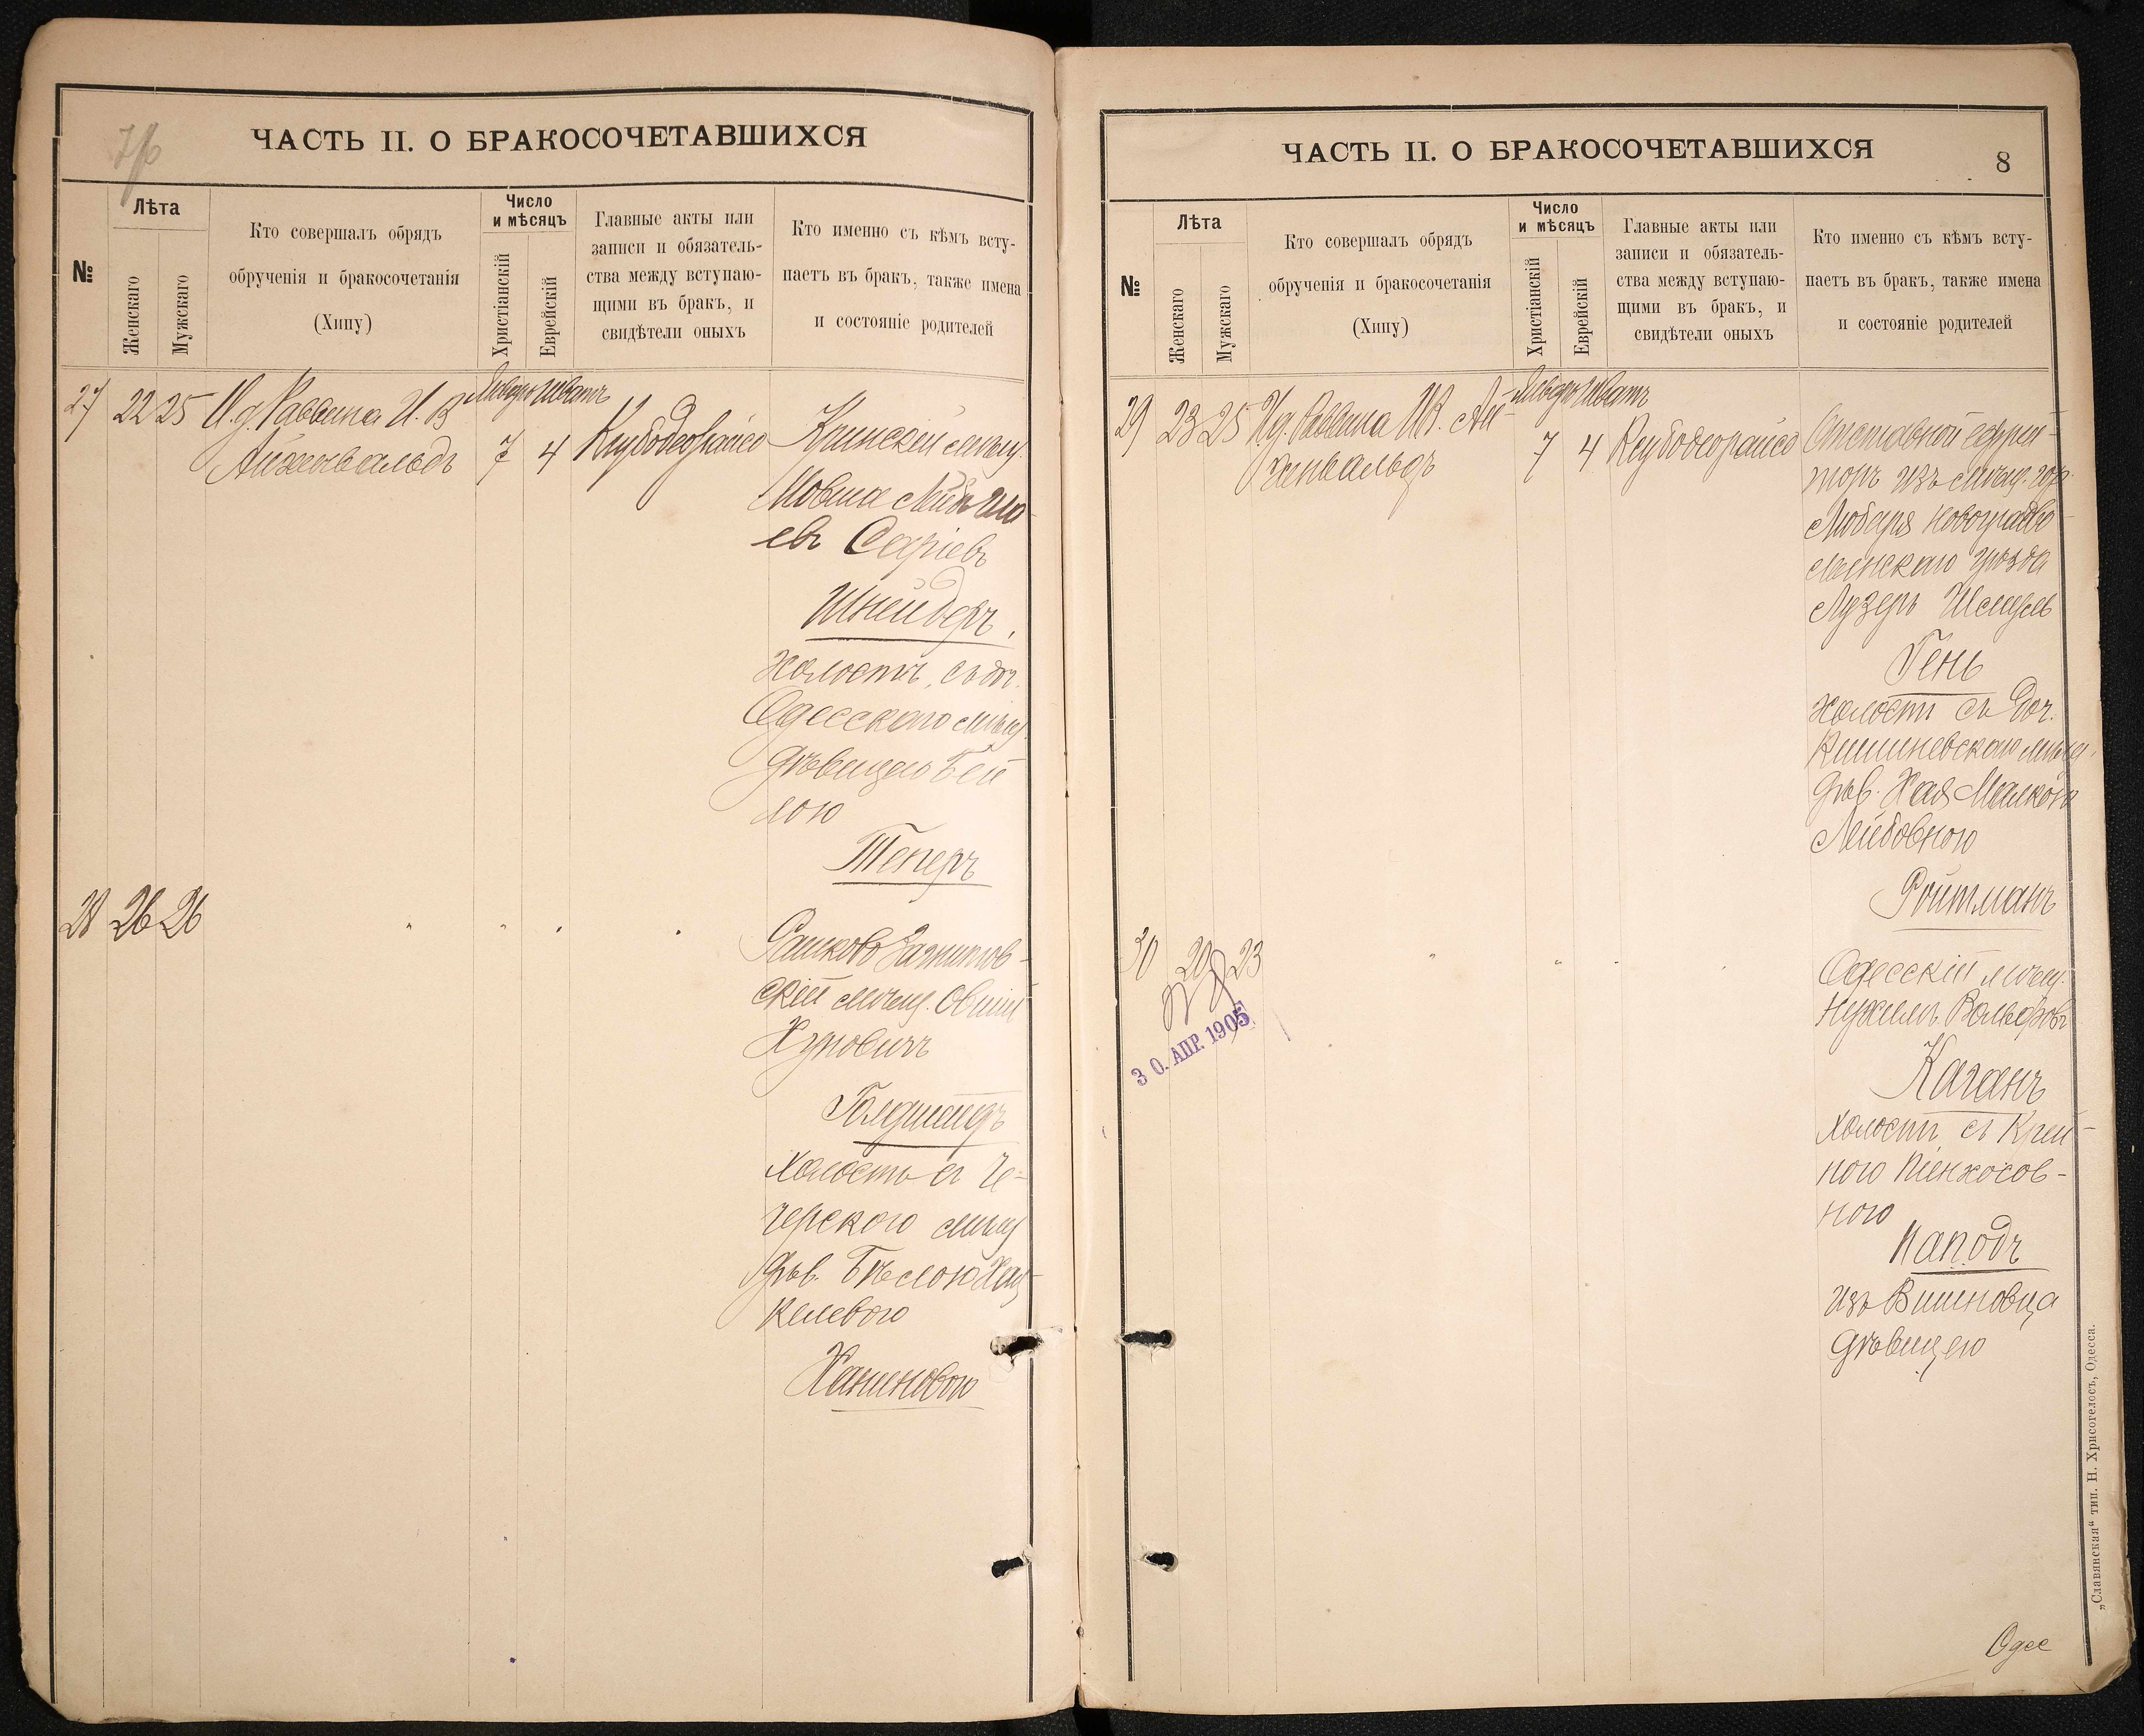 ЧАСТЬ II. О БРАКОСОЧЕТАВШИХСЯ
№
Лѣта
Женскаго
Мужскаго
Кто совершалъ обрядъ
обрученія и бракосочетанія
(Хипу)
Число
и мѣсяцъ
Христіанскій
Еврейскій
Главные акты или
записи и обязатель-
ства между вступаю-
щими въ бракъ, и
свидѣтели оныхъ
Кто именно съ кѣмъ всту-
паетъ въ бракъ, также имена
и состояніе родителей
27 22 25 И. д. Раввина И. В
Айхенвальдъ
Январь Шватъ
7 4
Ксубодеорайсо
Кринскій мѣщ.
Мовша
евъ
Шнейдеръ,
холостъ, съ доч.
Одесскаго мѣщ.
дѣвицею Бей
лою
Теперъ
28 26 26 " " " "
Рашково
скій мѣщ. Овший
Голдшейдъ
Холостъ съ Че-
черскою мѣщ
дѣв. Бѣлою Хац
келевою
Ханиновою
ЧАСТЬ II. О БРАКОСОЧЕТАВШИХСЯ
8
№
Лѣта
Женскаго
Мужскаго
Кто совершалъ обрядъ
обрученія и бракосочетанія
(Хипу)
Число
и мѣсяцъ
Христіанскій
Еврейскій
Главные акты или
записи и обязатель-
ства между вступаю-
щими въ бракъ, и
свидѣтели оныхъ
Кто именно съ кѣмъ всту-
паетъ въ бракъ, также имена
и состояніе родителей
29 23 25 И д. Раввина И В. Ай-
хенвальдъ
Январь Шватъ
7 4
Ксубодеорайсо
Отставной ефрей-
торъ изъ мѣщ. гор.
Любаря Новоградво-
лынскаго уѣзда
Лузеръ Шмуль
Гень
холостъ съ доч.
Кишиневскаго мѣщ.
дѣв. Хая Малкою
Лейбовною
Ройтманъ
30 20 23 " " " "
Одесскій мѣщ.
Нухимъ Вольфовъ
Каганъ
холостъ съ Крей-
ною Пинхосов-
ною
Наподъ
изъ Вишновца
дѣвицею
3 0. АПР. 1905
Одес
„Славянская“ тип. Н. Хрисогелосъ, Одесса.